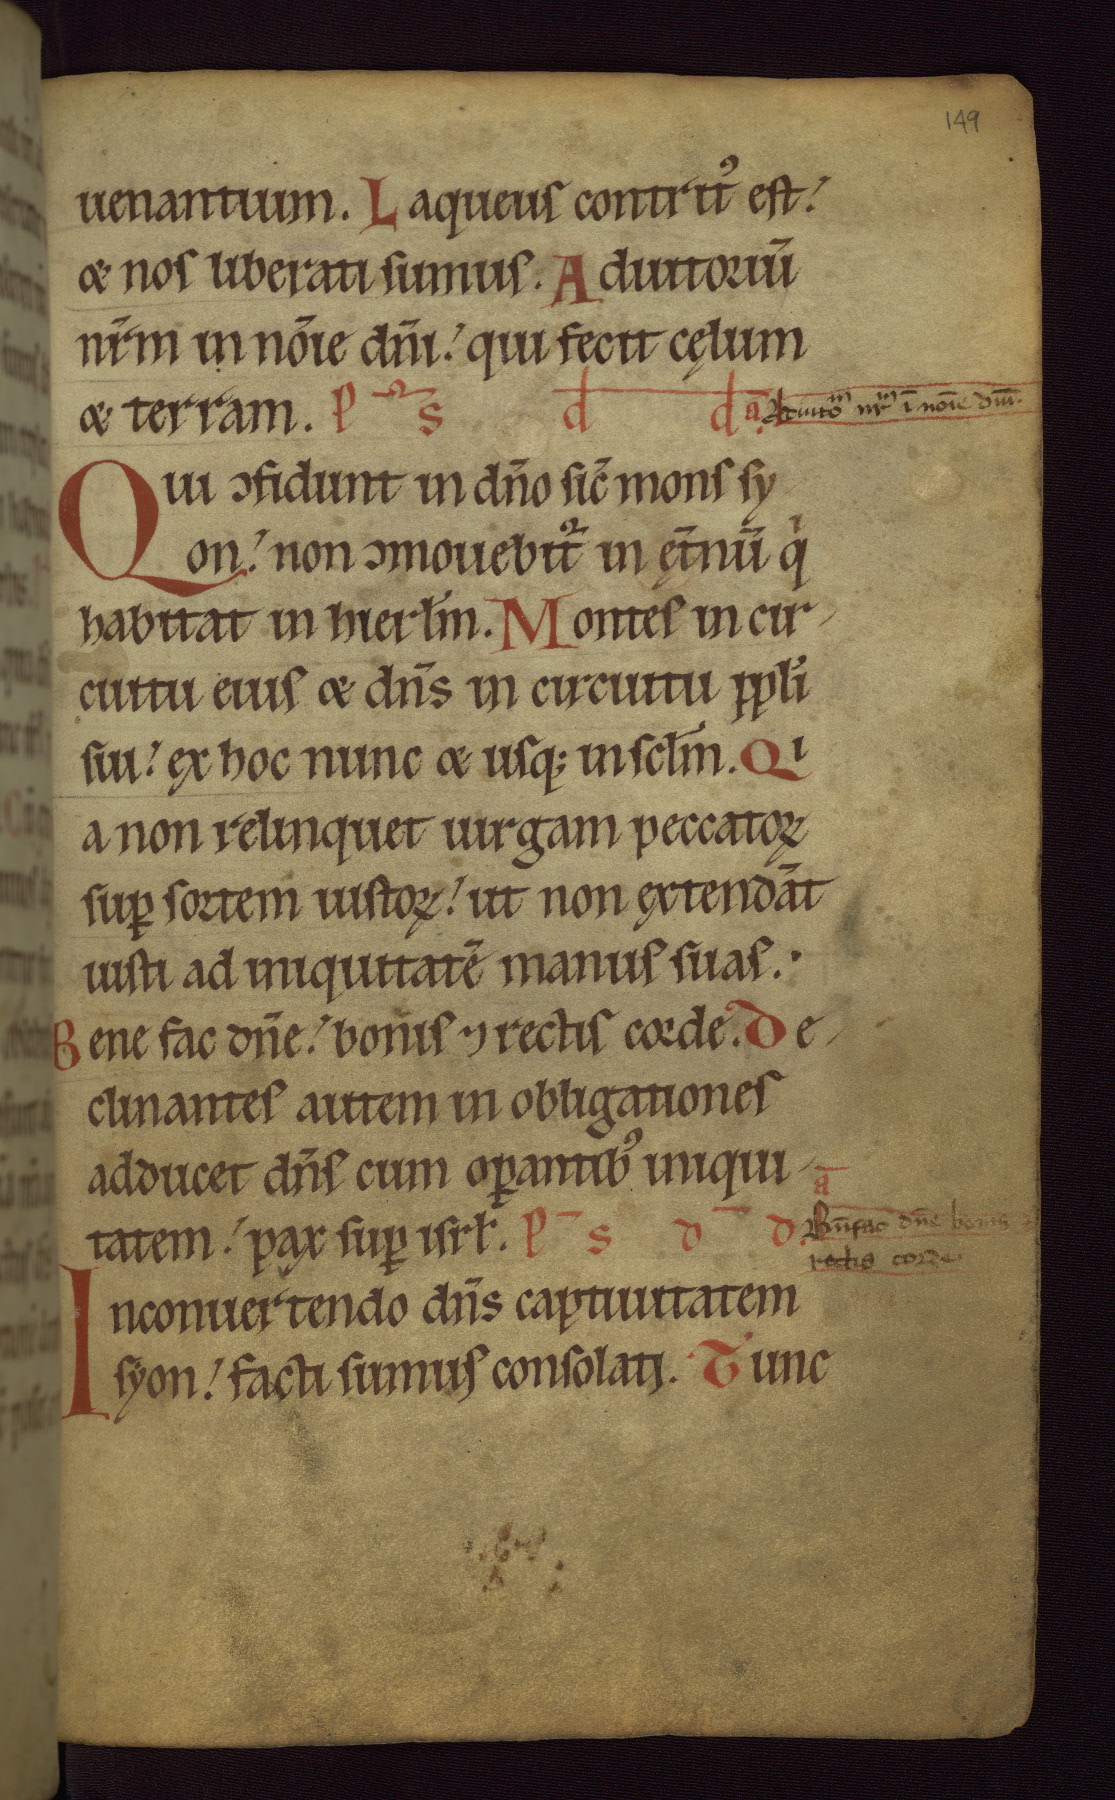 149
uenantium. Laqueus contrit᷒ est.
& nos liberati sumus. Adiutoriū
nr̄m in nōie dn̄i. qui fecit cęlum
& terram. P s d d a Adiutoᵐ nrᵐ ī noīe dnī.
Qui ɔfidunt in dn̄o sic̄ mons sy
on. non ɔmouebit᷑ in ęt̄nū qͥ
habitat in hierl̄m. Montes in cir-
cuitu eius & dn̄s in circuitu ppl̓i
sui. ex hoc nunc & usq; in scl̄m. Qi
a non relinquet uirgam peccatoꝝ
suꝑ sortem iustoꝝ. ut non extendāt
iusti ad iniquitatē manus suas.
Bene fac dn̄e. bonis ⁊ rectis corde. De-
clinantes autem in obligationes
adducet dn̄s cum oꝑantib᷒ iniqui-
tatem. pax suꝑ isrl̓. P s d d a Bn̄fac dn̄e bonis
rectis corde
Inconuertendo dn̄s captiuitatem
syon. facti sumus consolati. Tunc